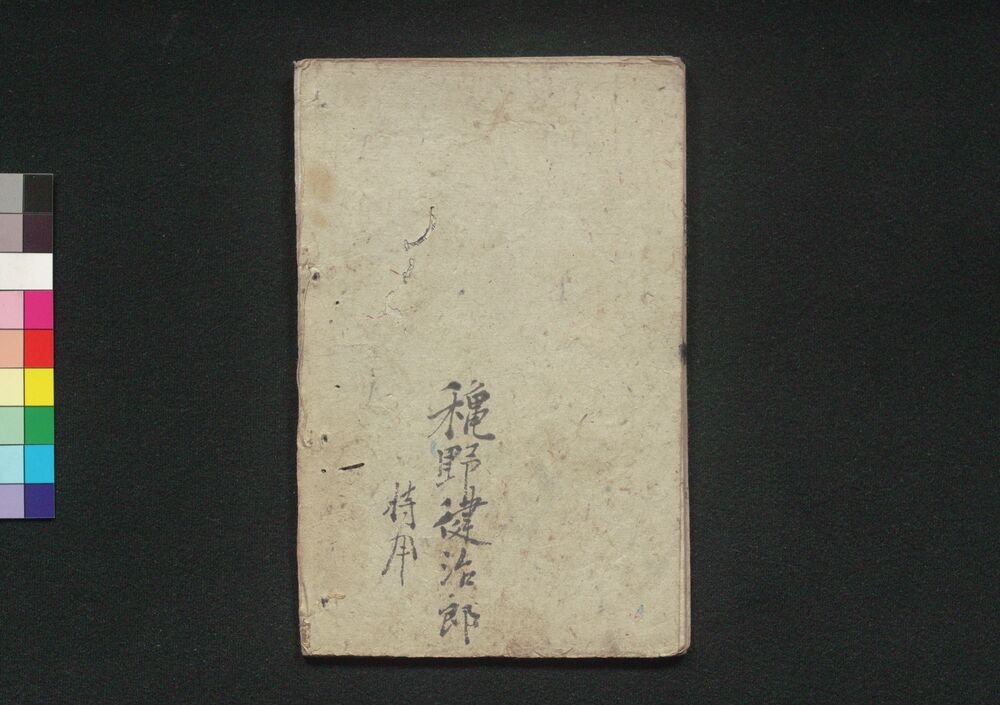 穐野健治郎
持用